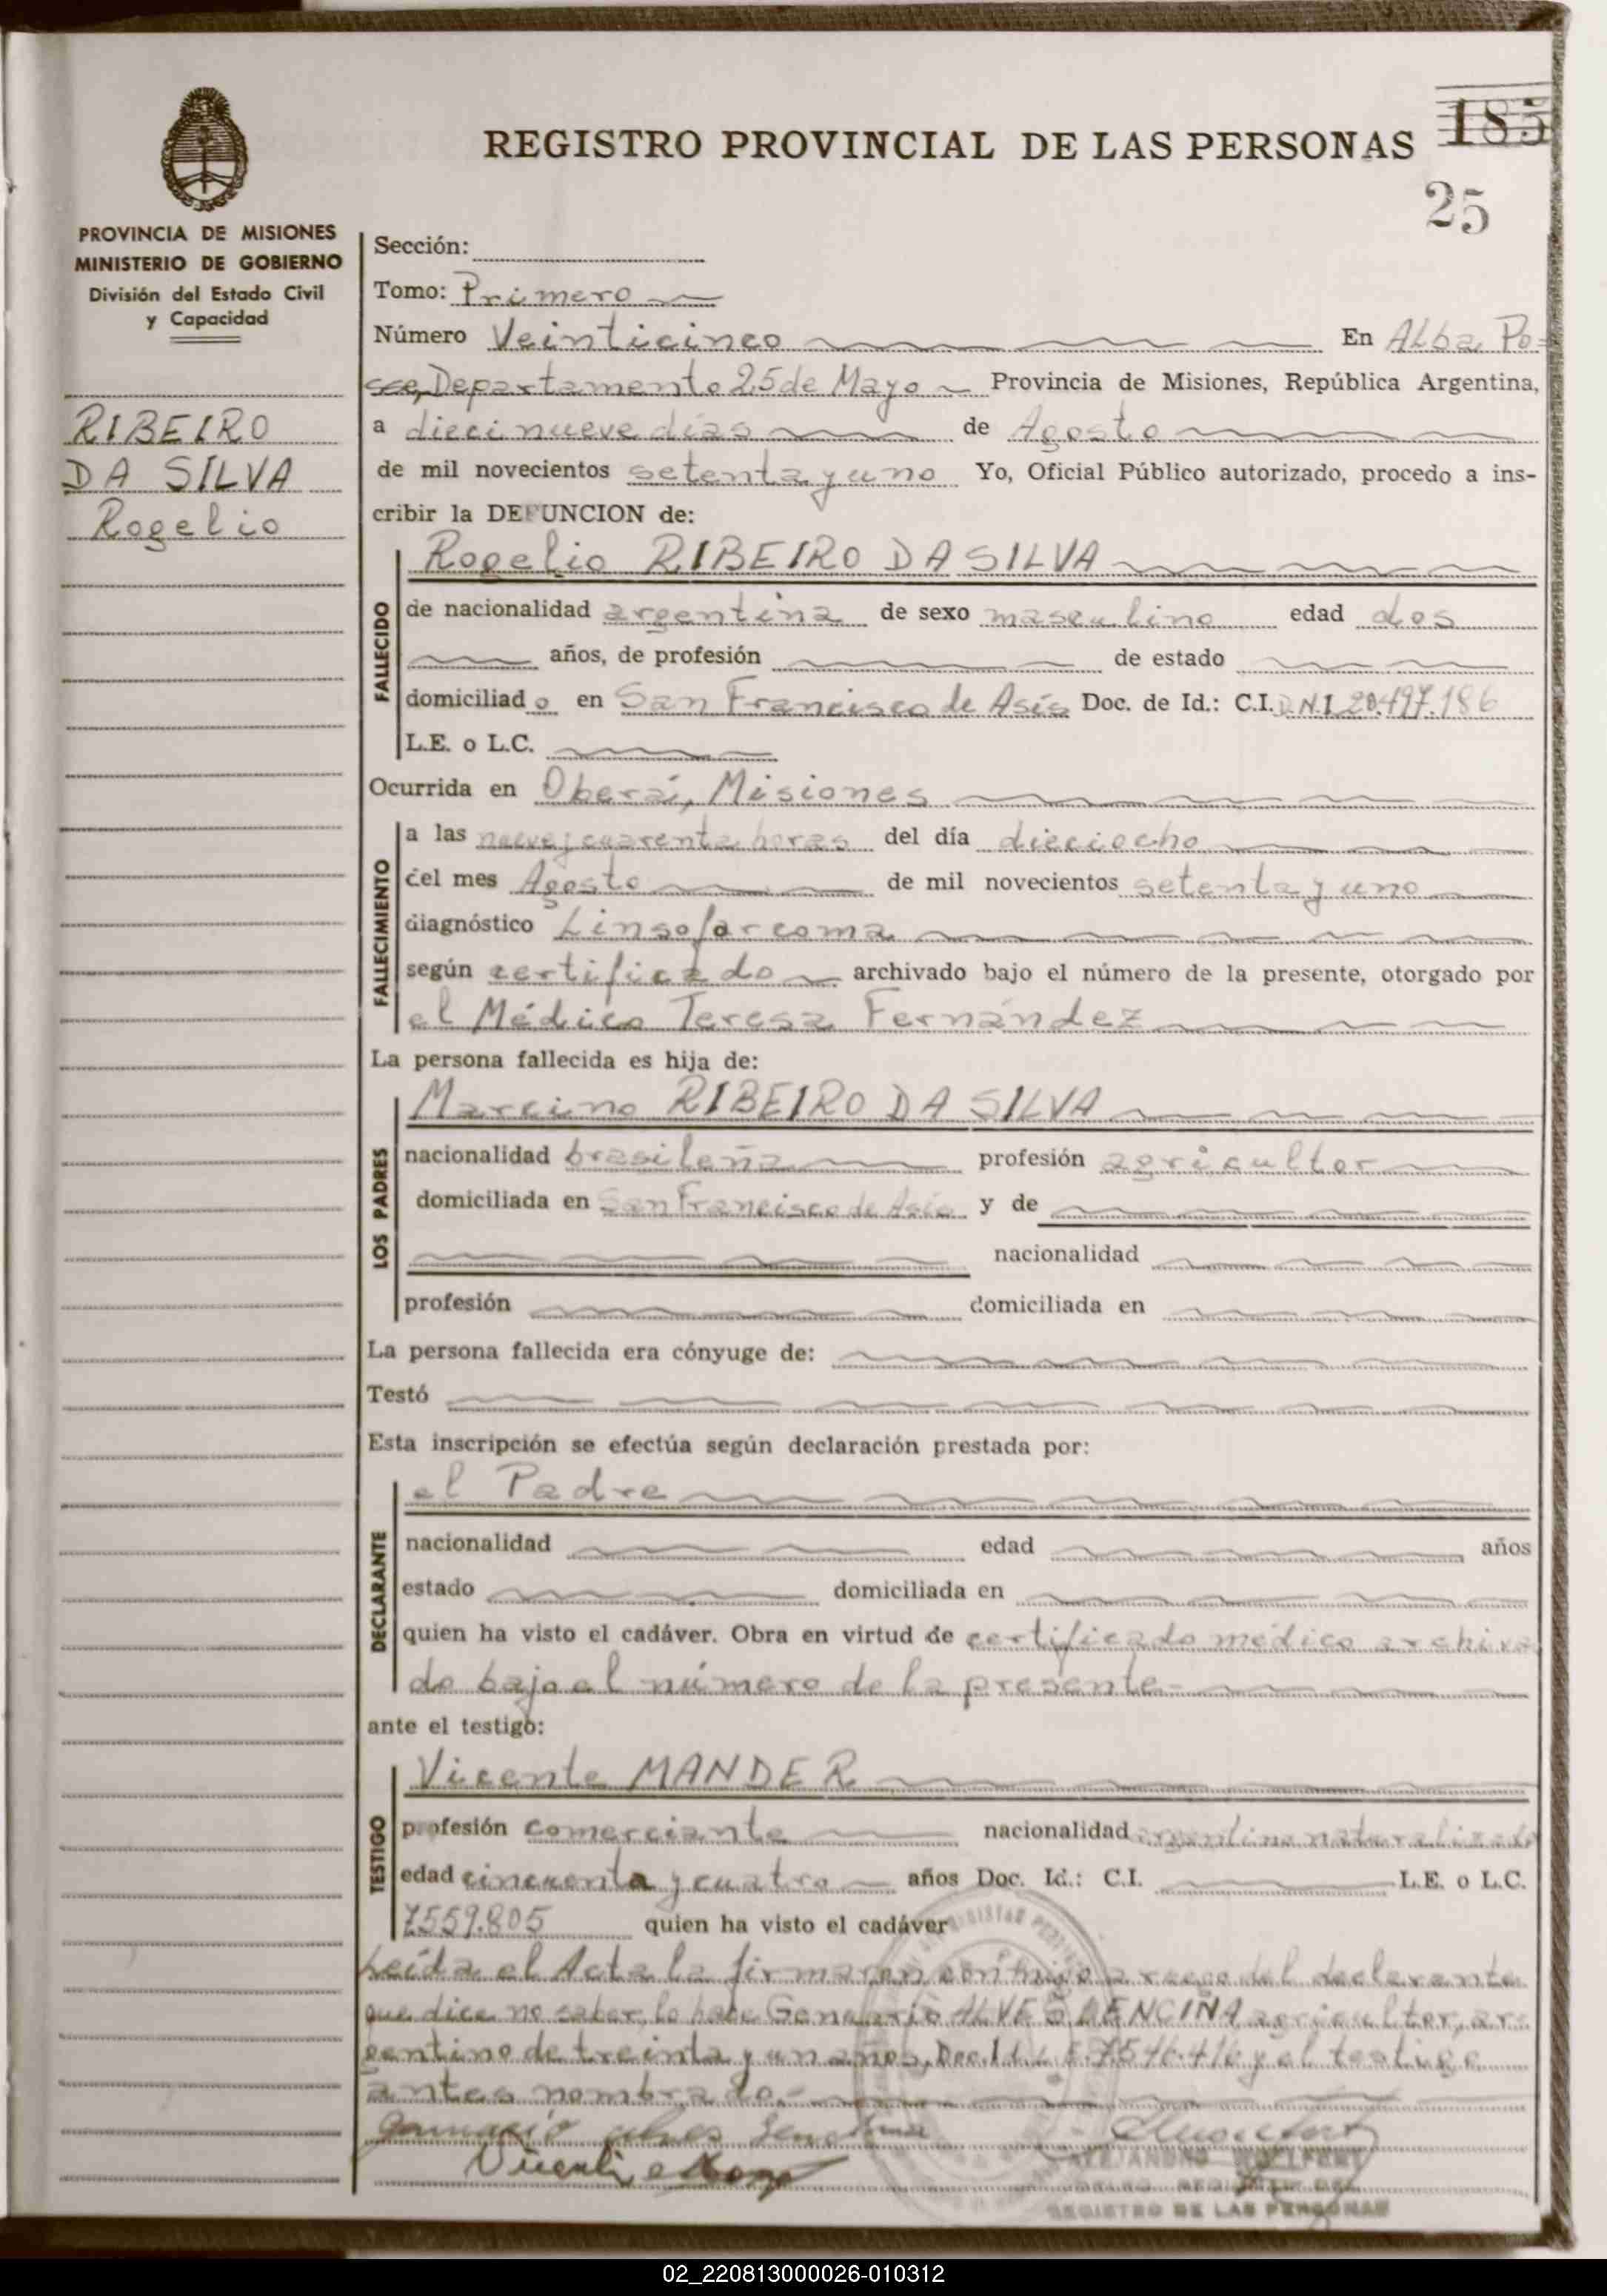 185
REGISTRO PROVINCIAL DE LAS PERSONAS
25
PROVINCIA DE MISIONES
MINISTERIO DE GOBIERNO
División del Estado Civil
y Capacidad
RIBEIRO
DA SILVA
Rogelio
Sección:
Tomo: Primero
Número Veinticinco En Alba Po=
sse, Departamento 25 de Mayo Provincia de Misiones, República Argentina,
a diecinueve días de Agosto
de mil novecientos setenta y uno Yo, Oficial Público autorizado, procedo a ins-
cribir la DEFUNCION de:
FALLECIDO
Rogelio RIBEIRO DA SILVA
de nacionalidad argentina de sexo masculino edad dos
años, de profesión de estado
domiciliado en San Francisco de Asís Doc. de Id.: C.I. D.N.I. 20.497.186
L.E. o L.C.
Ocurrida en Oberá, Misiones
FALLECIMIENTO
a las nueve y cuarenta horas del día dieciocho
del mes Agosto de mil novecientos setenta y uno
diagnóstico Linsofarcoma
según certificado archivado bajo el número de la presente, otorgado por
el Médico Teresa Fernández
La persona fallecida es hija de:
LOS PADRES
Marcino RIBEIRO DA SILVA
nacionalidad brasileña profesión agricultor
domiciliada en San Francisco de Asís y de
nacionalidad
profesión domiciliada en
La persona fallecida era cónyuge de:
Testó
Esta inscripción se efectúa según declaración prestada por:
DECLARANTE
el Padre
nacionalidad edad años
estado domiciliada en
quien ha visto el cadáver. Obra en virtud de certificado médico archiva
do bajo el número de la presente.
ante el testigo:
TESTIGO
Vicente MANDER
profesión comerciante nacionalidad argentino naturalizado
edad cincuenta y cuatro años Doc. Id.: C.I. L.E. o L.C.
7559.805 quien ha visto el cadáver
Leída el Acta la firmaron conmigo a ruego del declarante
que dice no saber, lo hace Genuario ALVES agricultor, ar-
gentino de treinta y un años, Doc. y el testigo
antes nombrado.-
ALEJANDRO
REGISTRO DE LAS PERSONAS
02_220813000026-010312